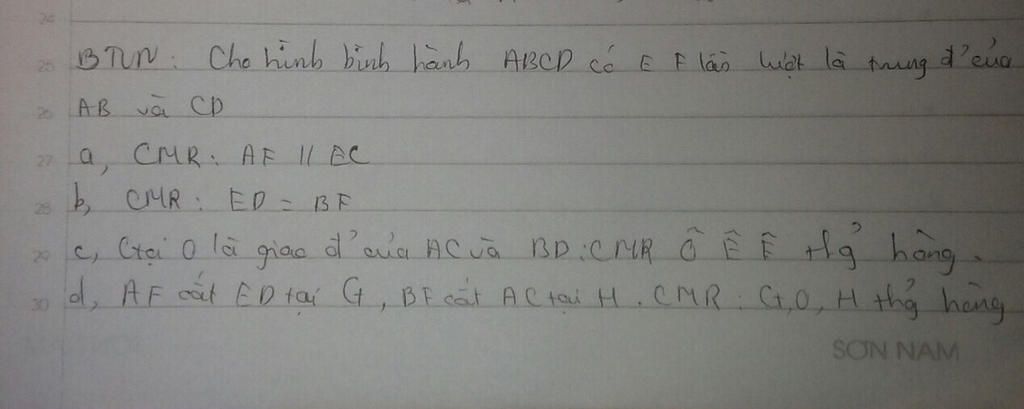 24
25 BTVN: Cho hình bình hành ABCD có E F lần lượt là trung đ' của
26 AB và CD
27 a, CMR: AF // EC
28 b, CMR: ED = BF
29 c, Gọi O là giao đ' của AC và BD: CMR Ô Ê Ê thẳg hàng.
30 d, AF cắt ED tại G, BF cắt AC tại H. CMR: G, O, H thẳg hàng
SƠN NAM